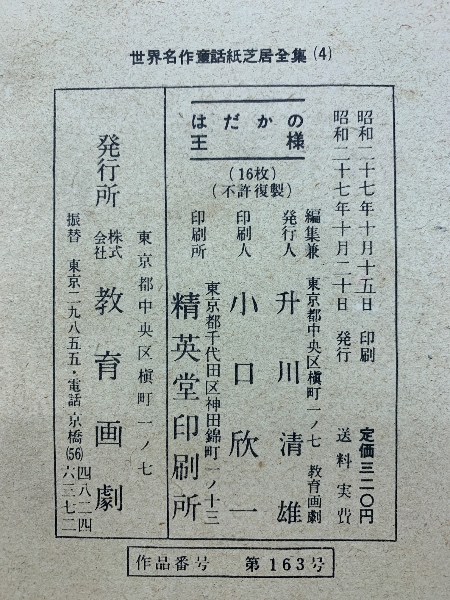 世界名作童話紙芝居全集(4)
はだかの
王様
(16枚)
(不許復製)
昭和二十七年十月十五日 印刷
昭和二十七年十月二十日 発行
定価三二〇円
送料実費
編集兼
発行人
東京都中央区槇町一ノ七 教育画劇
升川清雄
印刷人
小口欣一
印刷所
東京都千代田区神田錦町一ノ十三
精英堂印刷所
東京都中央区槇町一ノ七
発行所
株式
会社
教育画劇
振替 東京二九八五五・電話京橋(56)
四八二四
六三七二
作品番号 第163号